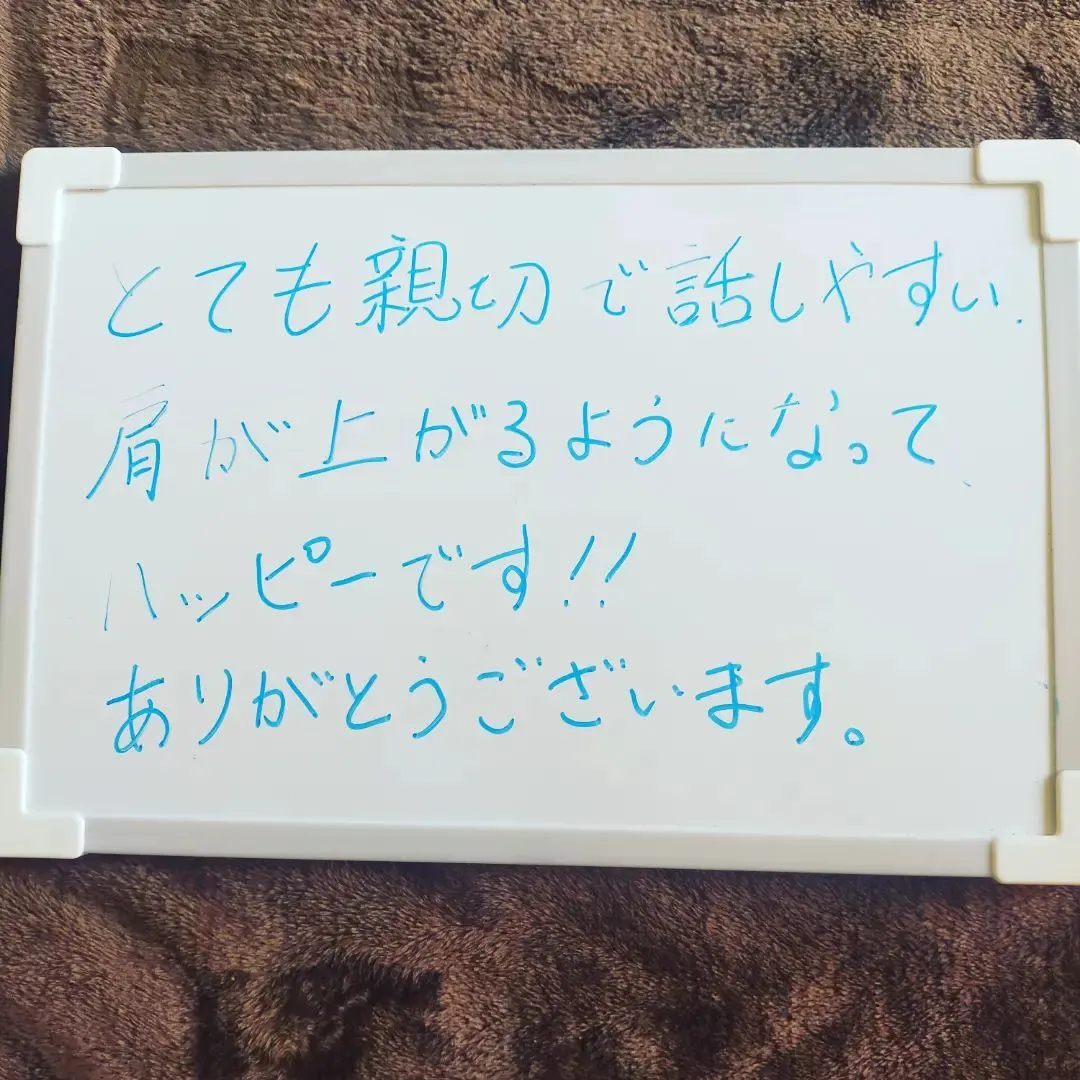 とても親切で話しやすい.
肩が上がるようになって、
ハッピーです!!
ありがとうございます。